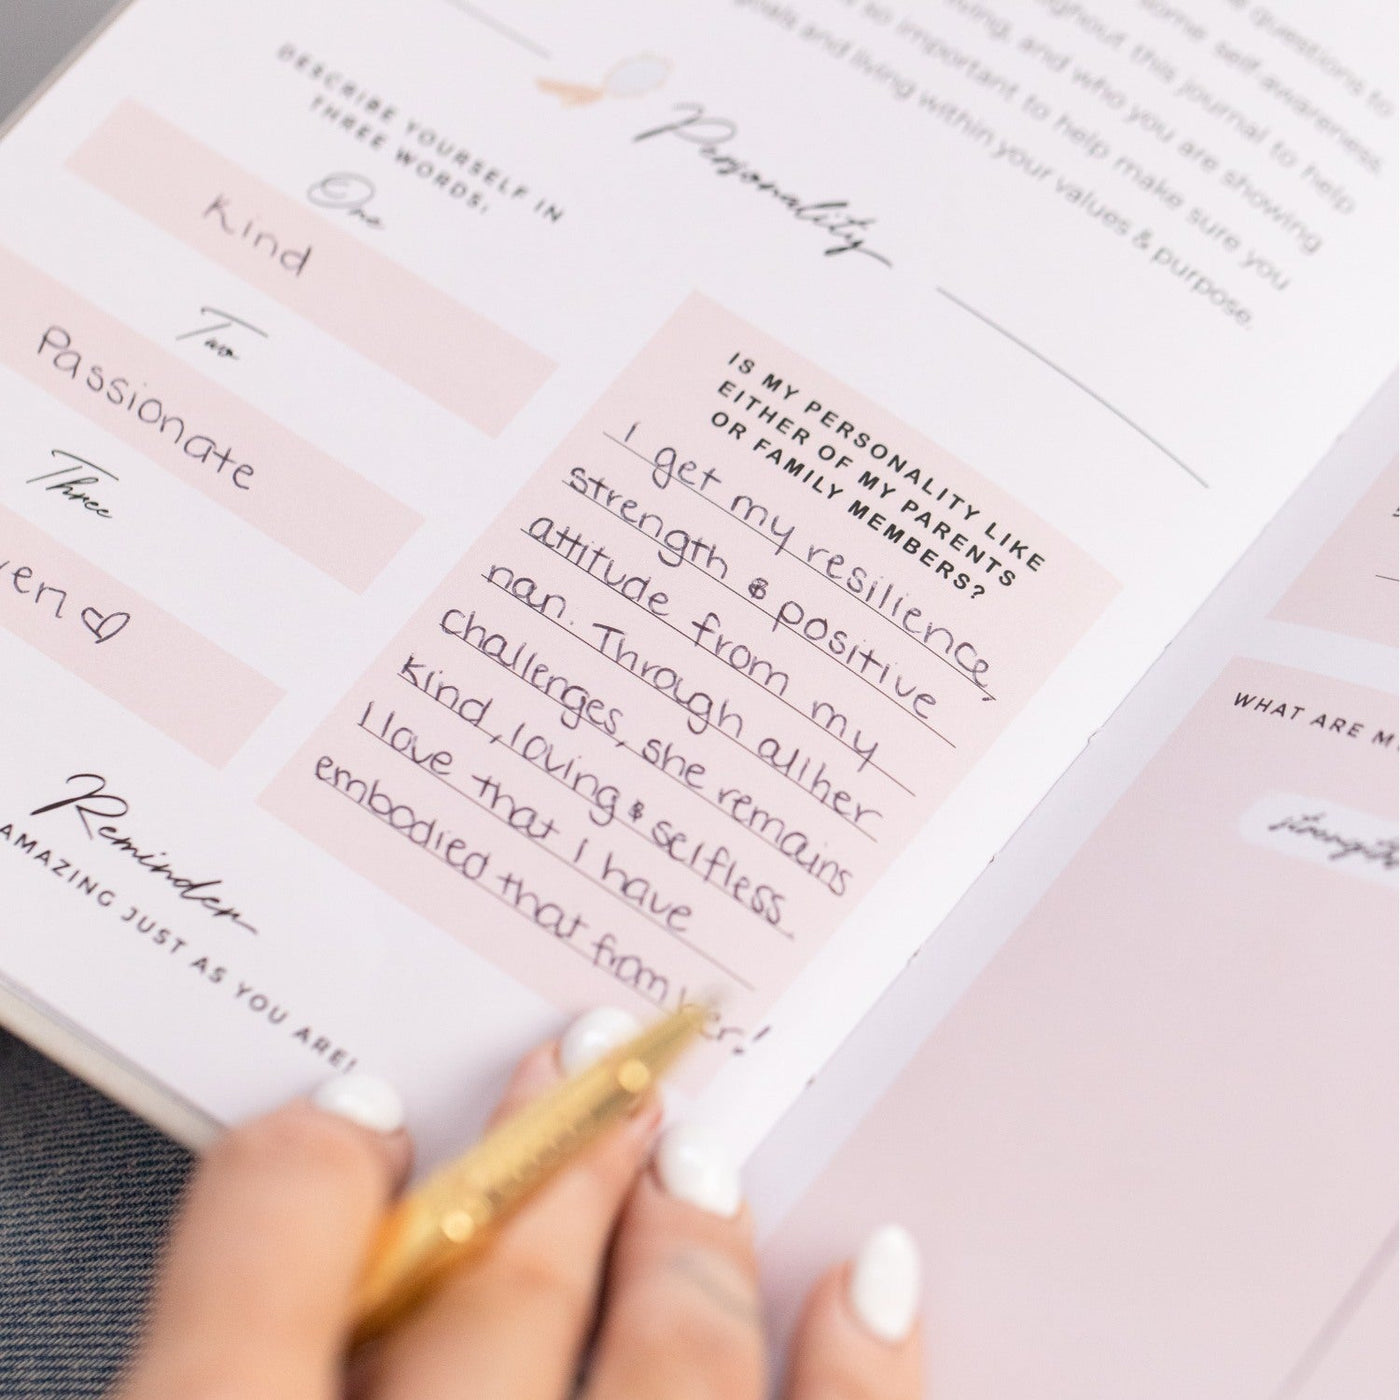 questions to
some self-awareness
throughout this journal to help
living, and who you are showing
so important to help make sure you
goals and living within your values & purpose.
Personality
DESCRIBE YOURSELF IN
THREE WORDS:
One
Kind
Two
Passionate
Three
ven ♡
Reminder
AMAZING JUST AS YOU ARE!
IS MY PERSONALITY LIKE
EITHER OF MY PARENTS
OR FAMILY MEMBERS?
I get my resilience,
strength & positive
attitude from my
nan. Through all her
challenges, she remains
kind, loving & selfless.
I love that I have
embodied that from her!
WHAT ARE M
strength